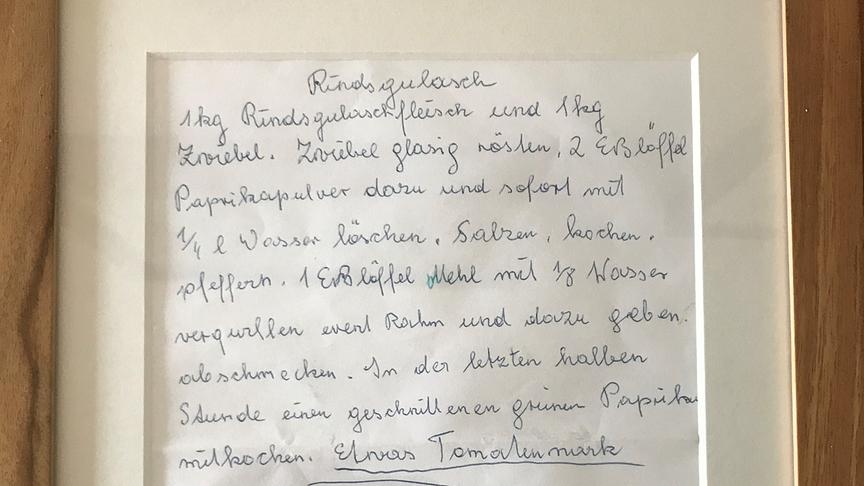 Rindsgulasch
1kg Rindsgulaschfleisch und 1kg
Zwiebel. Zwiebel glasig rösten, 2 Eßlöffel
Paprikapulver dazu und sofort mit
1/4 l Wasser löschen. Salzen, kochen.
pfeffern. 1 Eßlöffel Mehl mit 1/8 Wasser
verquirllen event Rahm und dazu geben.
abschmecken. In der letzten halben
Stunde einen geschnittenen grünen Paprika
mitkochen. Etwas Tomatenmark